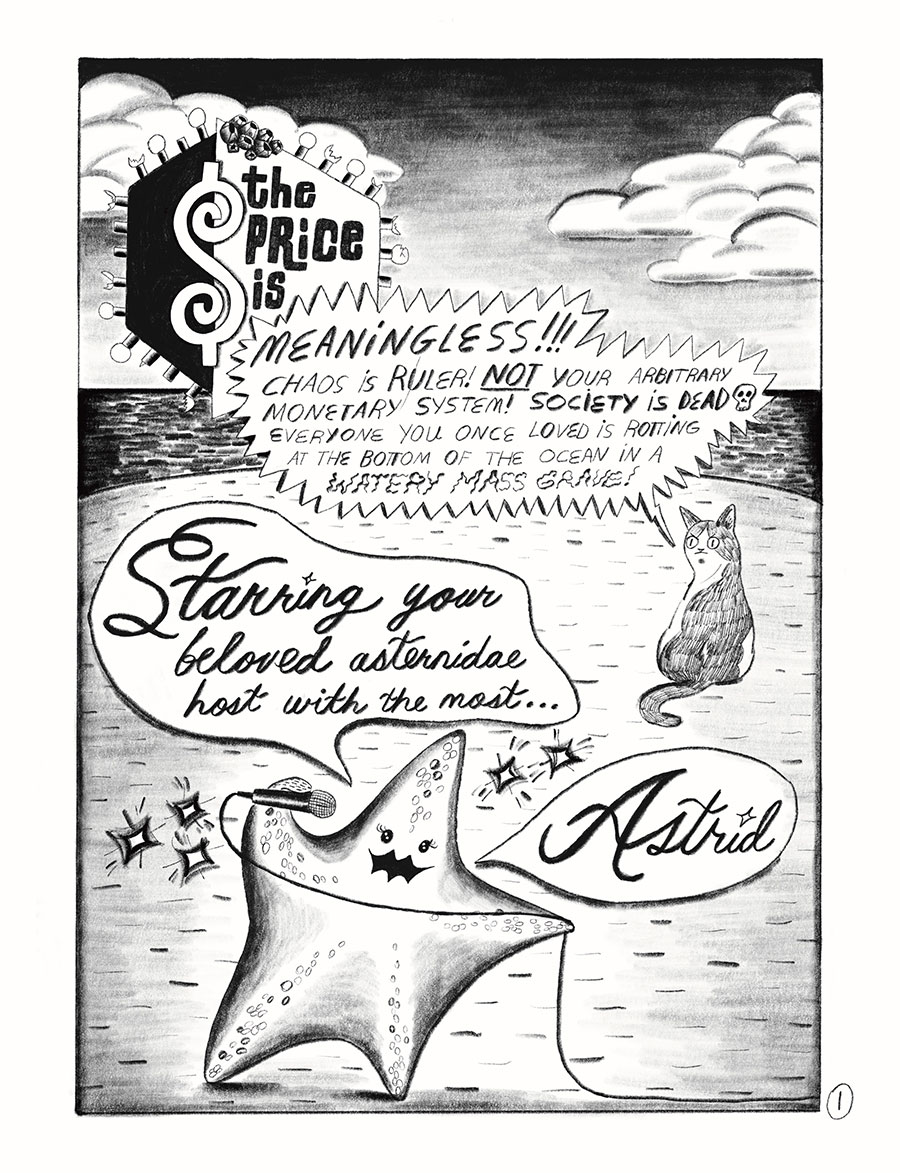 $ the
PRice
is
MEANiNGLESS!!!
CHAOS iS RULER! NOT YOUR ARBITRARY
MONETARY SYSTEM! SOCIETY iS DEAD
EVERYONE YOU ONCE LOVED iS ROTTING
AT THE BOTTOM OF THE OCEAN IN A
WATERY MASS GRAVE!
Starring your
beloved asternidae
host with the most...
Astrid
1